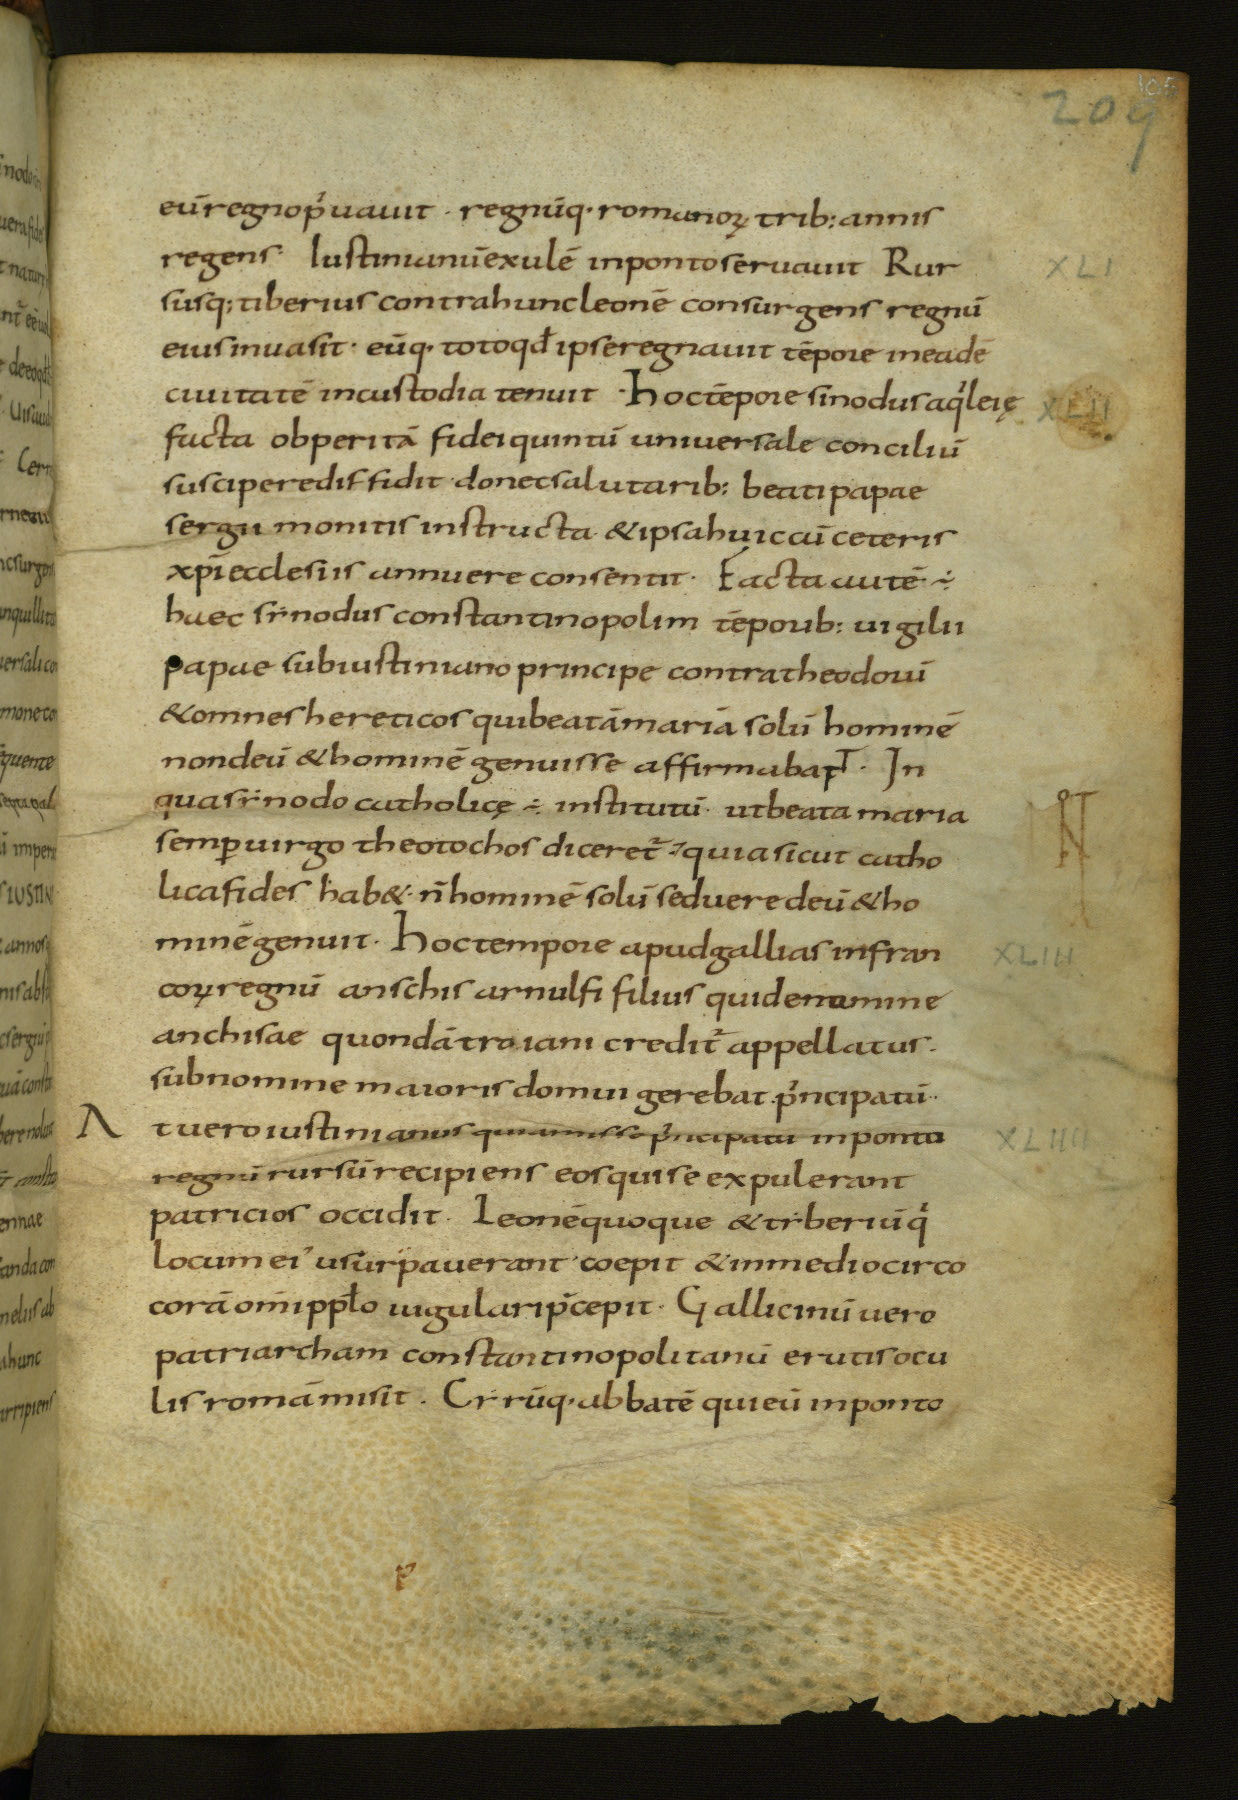 209
eū regno p̓uauit · regnūq· romanoꝝ trib: annis
regens· Iustinianū exulē inponto seruauit Rur
XLI
susq; tiberius contra hunc leonē consurgens regnū
eius inuasit· eūq· toto qđ ipse regnauit tēpore in eadē
ciuitatē in custodia tenuit · hoc tēpore sinodus aq̓leię
XLII
facta ob peritā fidei quintū uniuersale conciliū
suscipere diffidit donec salutarib: beati papae
sergii monitis instructa & ipsa huic cū ceteris
xp̄i ecclesiis annuere consentit· Facta autē ÷
haec sẏnodus constantinopolim tēporib: uigilii
papae sub iustiniano principe contra theodorū
& omnes hereticos qui beatā mariā solū hominē
non deū & hominē genuisse affirmabaNT · In
qua sẏnodo catholicę ÷ institutū· ut beata maria
semꝑ uirgo theotochos diceret᷑ quia sicut catho
lica fides hab&· n̄ hominē solū sed uere deū & ho
minē genuit· hoc tempore apud gallias in fran
XLIII
coꝝ regnū anschis arnulfi filius qui de nomine
anchisae quondā troiani credit᷑ appellatus·
sub nomine maioris domui gerebat p̓ncipatū·
At uero iustinianus qui amisso p̓ncipatu in ponto
XLIIII
regnū rursū recipiens eos qui se expulerant
patricios occidit· Leonē quoque & tẏberiū q̓
locum ei᾽ usurpauerant coepit & in medio circo
corā om̄i ppłō iugulari p̄cepit· Gallicinū uero
patriarcham constantinopolitanū erutis ocu
lis romā misit · Cẏrūq· abbatē qui eū in ponto